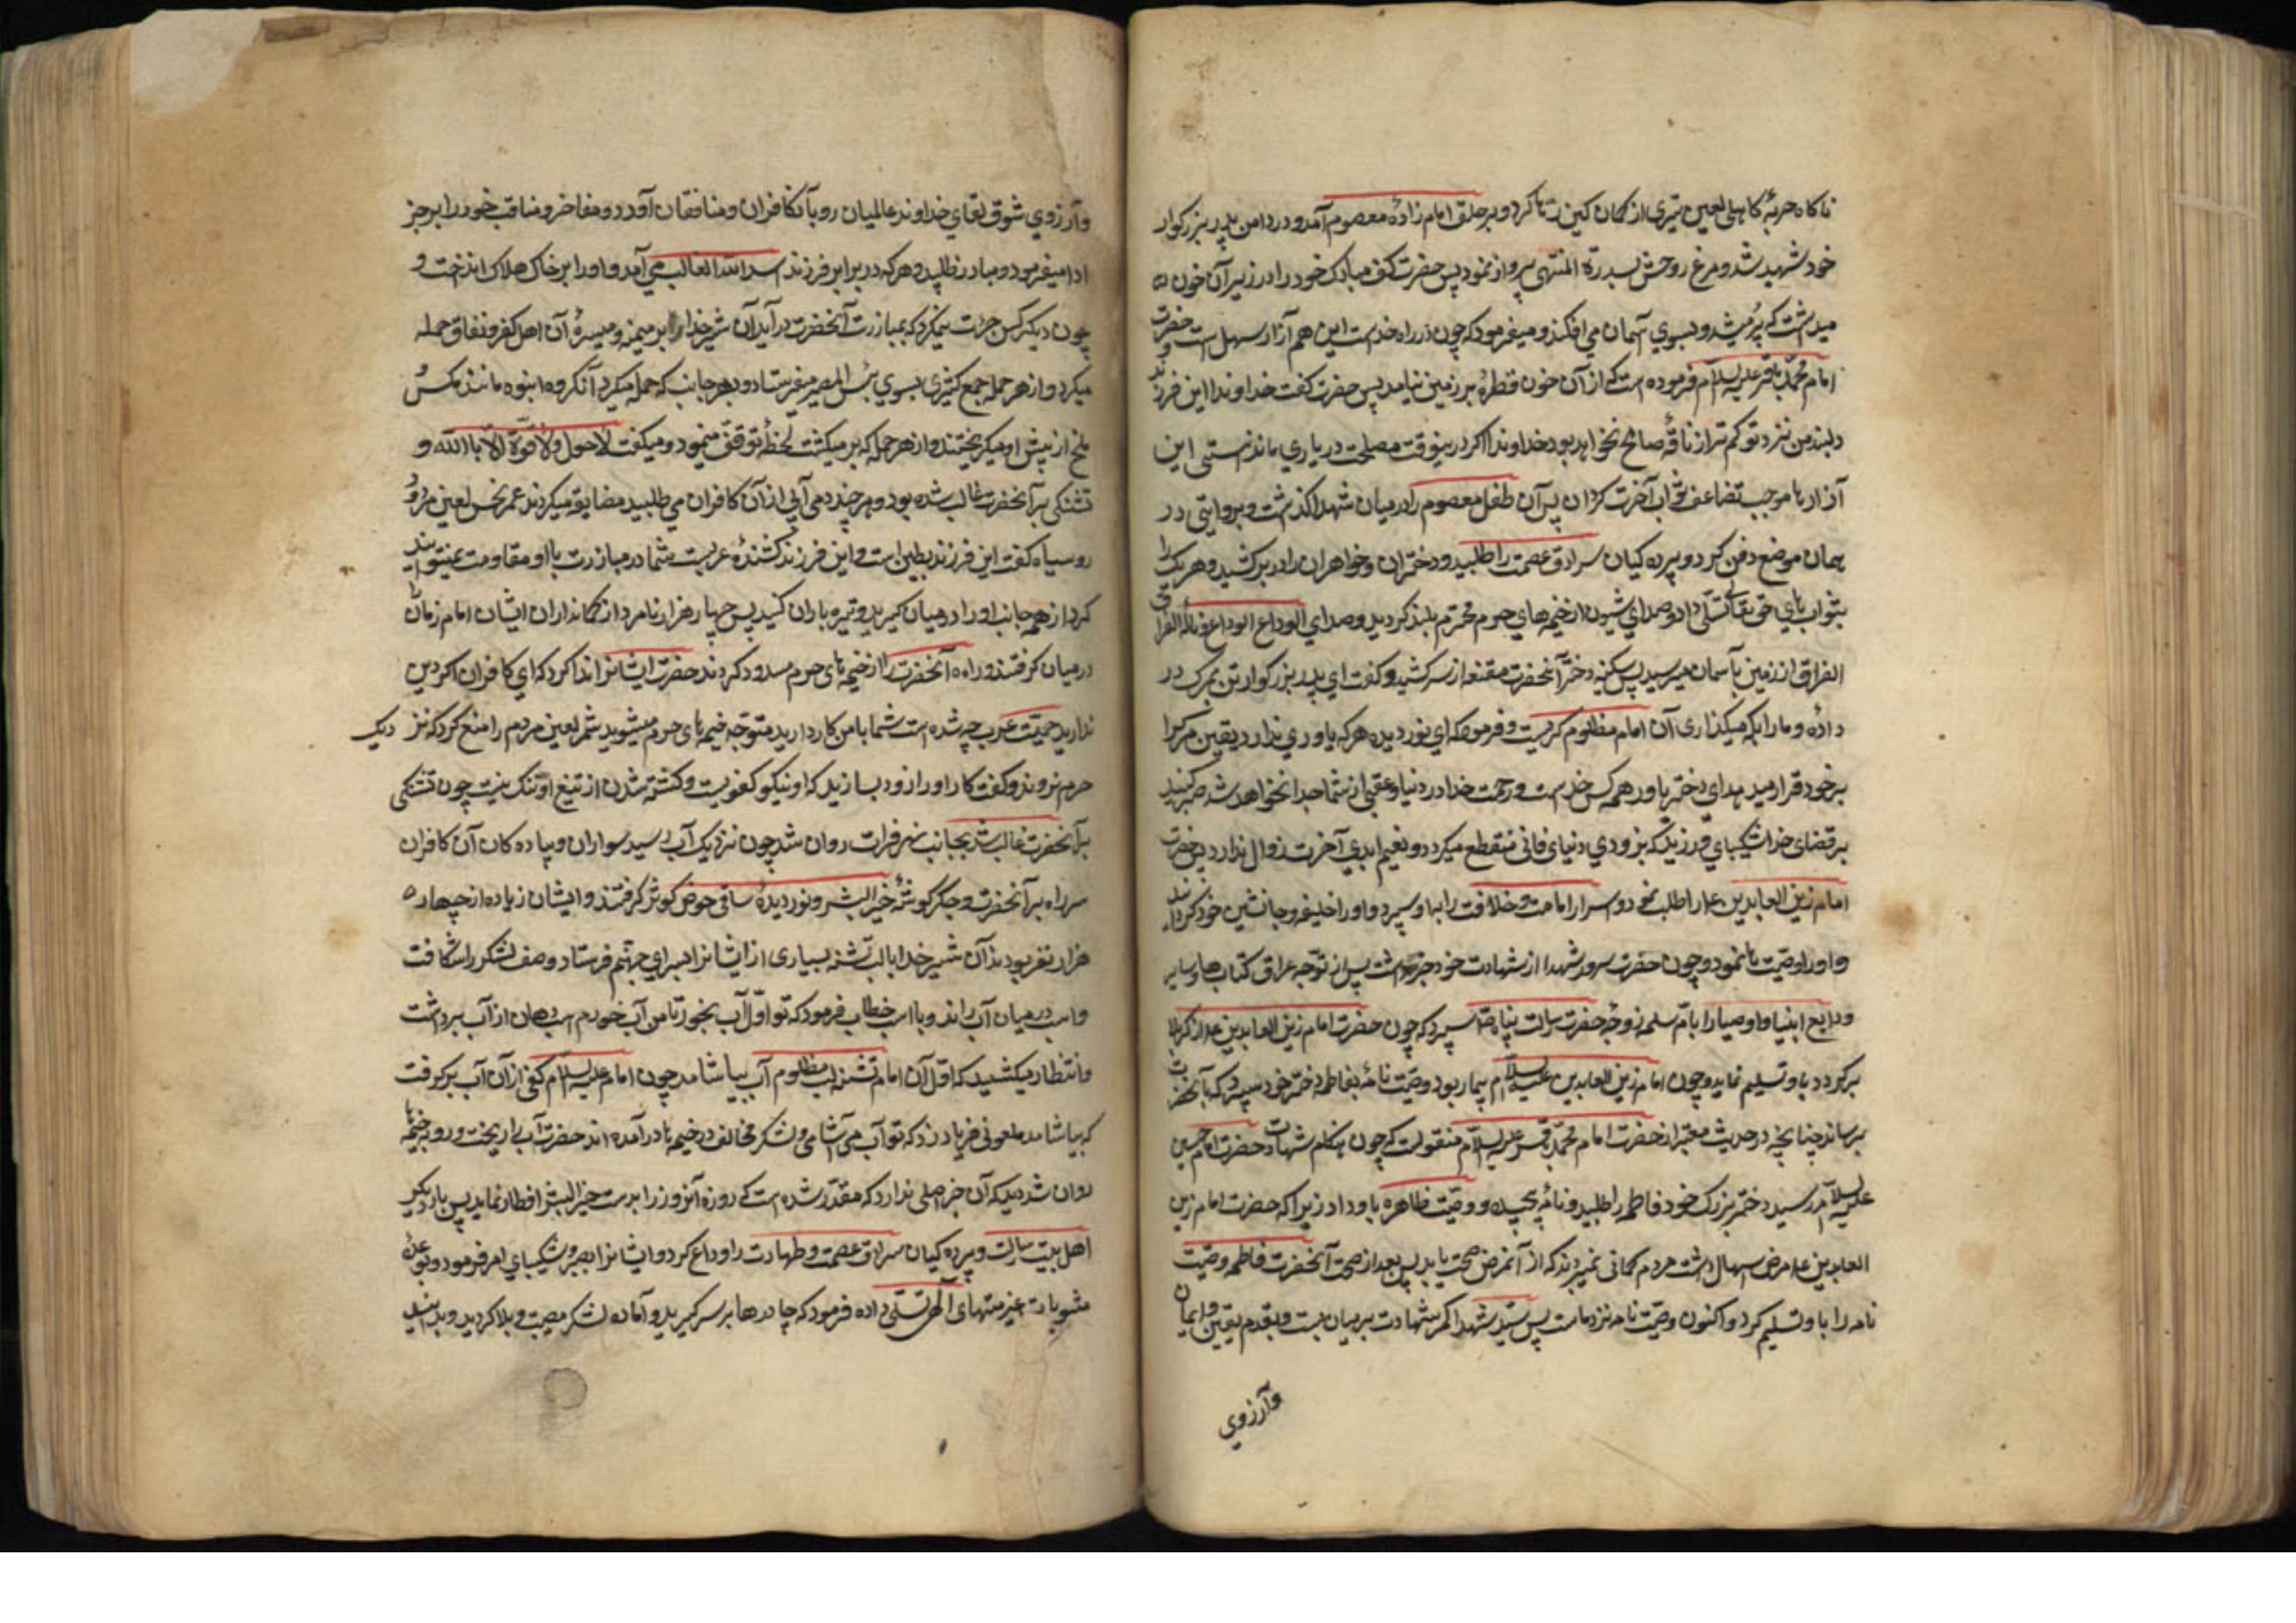 ناکاه حربۀ کاهلی لعین تیری از کمان کین رها کرد و بر حلق امام زادۀ معصوم آمد و در دامن پدر بزرکوار
خود شهید شد و مرغ روحش بسدرة المنتهی پرواز نمود پس حضرت کف مبارک خود را در زیر آن خون
میداشت که پر میشد و بسوی آسمان می افکند و میفرمود که چون در راه خداست این هم آزار سهل است و حضرت
امام محمد باقر علیه السلام فرموده است که از آن خون قطرۀ بر زمین نیامد پس حضرت کفت خداوندا این فرزند
دلبند من نزد تو کم تر از ناقۀ صالح نخواهد بود خداوندا اکر درینوقت مصلحت در یاری ما ندانستی این
آزارها موجب تضاعف ثواب آخرت کردان پس آن طفل معصوم را در میان شهدا کذاشت و بروایتی در
همان موضع دفن کرد و پرده کیان سرادق عصمت را طلبید و دختران و خواهران را در بر کشید و هر یک را
بثواب های حق تعالی تسلی داد و صدای شیون از خیمه های حرم محترم بلند کردید و صدای الوداع الوداع و نالۀ الفراق
الفراق از زمین بآسمان میرسید پس سکینه دختر آنحضرت مقنعه از سر کشید و کفت ای پدر بزرکوار تن بمرک در
دادۀ و ما را بکه میکذاری آن امام مظلوم کریست و فرمود که ای نور دیده هر که یاوری ندارد یقین مرک را
بر خود قرار میدهد ای دختر یاور همه کس خداست و رحمت خدا در دنیا و عقبی از شما جدا نخواهد شد صبر کنید
بر قضای خدا و شکیبای ورزید که بزودی دنیای فانی منقطع میکردد و نعیم ابدی آخرت زوال ندارد پس حضرت
امام زین العابدین ع را طلب نمود و اسرار امامت و خلافت را باو سپرد و او را خلیفه و جانشین خود کردانید
و او را وصیت ها نمود و چون حضرت سرور شهدا از شهادت خود خبر داشت پیش از توجه عراق کتاب ها و سایر
ودایع انبیا و اوصیا را بام سلمه زوجۀ حضرت رسالت پناه ص سپرد که چون حضرت امام زین العابدین ع از کربلا
برکردد باو تسلیم نماید و چون امام زین العابدین علیه السلام بیمار بود وصیت نامۀ بفاطمه دختر خود سپرد که بآنحضرت
برساند چنانچه در حدیث معتبر از حضرت امام محمد باقر علیه السلام منقولست که چون هنکام شهادت حضرت امام حسین
علیه السلام رسید دختر بزرک خود فاطمه را طلبید و نامۀ پیچیده و وصیت ظاهره باو داد زیرا که حضرت امام زین
العابدین ع مرض اسهال داشت مردم کمانی نمیبردند که از آنمرض صحت یابد پس بعد از صحت آنحضرت فاطمه وصیت
نامه را باو تسلیم کرد و اکنون وصیت نامه نزد ماست پس سید شهدا کمر شهادت بر میان بست و بقدم یقین و ایمان
وآرزوی
وآرزوی شوق لقای خداوند عالمیان رو بآن کافران و منافقان آورد و مفاخر و مناقب خود را بر رجز
ادا میفرمود و مبارز طلبید و هر که در برابر فرزند اسد الله الغالب می آمد او را بر خاک هلاک انداخت و
چون دیکر کس جرات نمیکرد که بمبارزت آنحضرت در آید آن شیر خدا بر میمنه و میسرۀ آن اهل کفر و نفاق حمله
میکرد و از هر حمله جمع کثیری بسوی بئس المصیر میفرستاد و بهر جانب که حمله میکرد آنکروه انبوه مانند مکس و
ملخ از پیش او میکریختند و از هر حمله که بر میکشت لحظۀ توقف مینمود و میکفت لا حول ولا قوة الا باالله و
تشنکی بر آنحضرت غالب شده بود و هر چند دمی آبی از آن کافران می طلبید مضایقه میکردند عمر نحس لعین مردود
روسیاه کفت این فرزند بطین است و این فرزند کشندۀ عربست شما در مبارزت با او مقاومت نمیتوانید
کرد از همه جانب او را در میان کیرید و تیره باران کنید پس چهار هزار نامرد از کمانداران ایشان امام زمان را
در میان کرفتند و راه آنحضرت را از خیمه های حرم مسدود کردند حضرت ایشانرا ندا کرد که ای کافران اکر دین
ندارید حمیت عرب چه شده است شما با من کار دارید متوجه خیمه های حرم میشوید شمر لعین مردم را منع کرد که نزدیک
حرم نروند و کفت کار او را زود بسازید که او نیکو کفویست و کشته شدن از تیغ او ننک نیست چون تشنکی
بر آنحضرت غالب شد بجانب نهر فرات روان شد چون نزدیک آب رسید سواران و پیاده کان آن کافران
سر راه بر آنحضرت و جکر کوشۀ خیر البشر و نور دیدۀ ساقی حوض کوثر کرفتند و ایشان زیاده از چهار
هزار نفر بودند آن شیر خدا با لب تشنه بسیاری از ایشانرا بسرای جهنم فرستاد و صف لشکر را شکافت
و اسب در میان آب راند و با اسب خطاب فرمود که تو اول آب بخور تا من آب خورم اسب دهان از آب برداشت
و انتظار میکشید که اول آن امام تشنه لب مظلوم آب بیاشامد چون امام علیه السلام کفی از آن آب برکرفت
که بیاشامد ملعونی فریاد زد که تو آب می آشامی و لشکر مخالف در خیمه ها درآمده اند حضرت آب را ریخت و رو بخیمه ها
روان شد دید که آن خبر اصلی ندارد که مقدر شده است که روزۀ آنروز را بدست خیر البشر افطار نماید پس بار دیکر
اهل بیت رسالت و پرده کیان سرادق عصمت و طهارت را وداع کرد و ایشانرا بصبر و شکیبای امر فرمود و بوعدۀ
مثوبات غیر متناهای آلهی تسلی داده فرمود که چادرها بر سر کیرید و آماده لشکر مصیبت و بلا کردید و بدانید